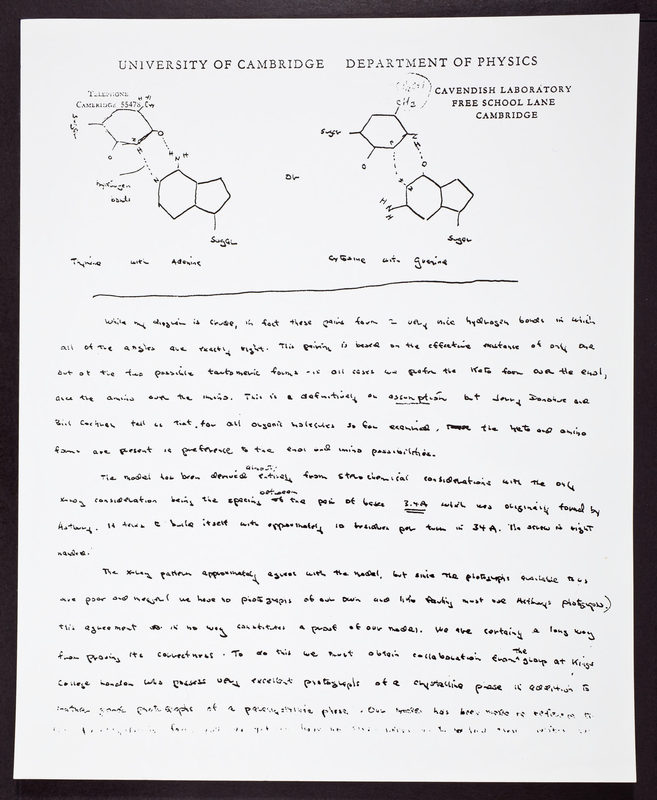 UNIVERSITY OF CAMBRIDGE DEPARTMENT OF PHYSICS
TELEPHONE
CAMBRIDGE 55478
CAVENDISH LABORATORY
FREE SCHOOL LANE
CAMBRIDGE
CH3
Sugar
O
H
N
H
hydrogen
bonds
Sugar
OR
CH3
Sugar
O
O
H
N
H
Sugar
Sugar
Thymine with Adenine
Cytosine with Guanine
While my diagram is crude, in fact these pairs form 2 very nice hydrogen bonds in which
all of the angles are exactly right. This pairing is based on the effective existence of only one
out of the two possible tautomeric forms - in all cases we prefer the keto form over the enol,
and the amino over the imino. This is a definitively an assumption but Jerry Donohue and
Bill Cochran tell us that, for all organic molecules so far examined, the keto and amino
forms are present in preference to the enol and imino possibilities.
The model has been derived almost entirely from stereochemical considerations with the only
x-ray consideration being the spacing between the pair of bases 3.4 A which was originally found by
Astbury. It tends to build itself with approximately 10 residues per turn in 34 A. The screw is right
handed.
The x-ray pattern approximately agrees with the model, but since the photographs available to us
are poor and meagre (we have no photographs of our own and like Pauling must use Astbury's photographs)
this agreement in no way constitutes a proof of our model. We are certainly a long way
from proving its correctness. To do this we must obtain collaboration from the group at Kings
College London who possess very excellent photographs of a crystalline phase in addition to
rather good photographs of a paracrystalline phase. Our model has been made in reference to